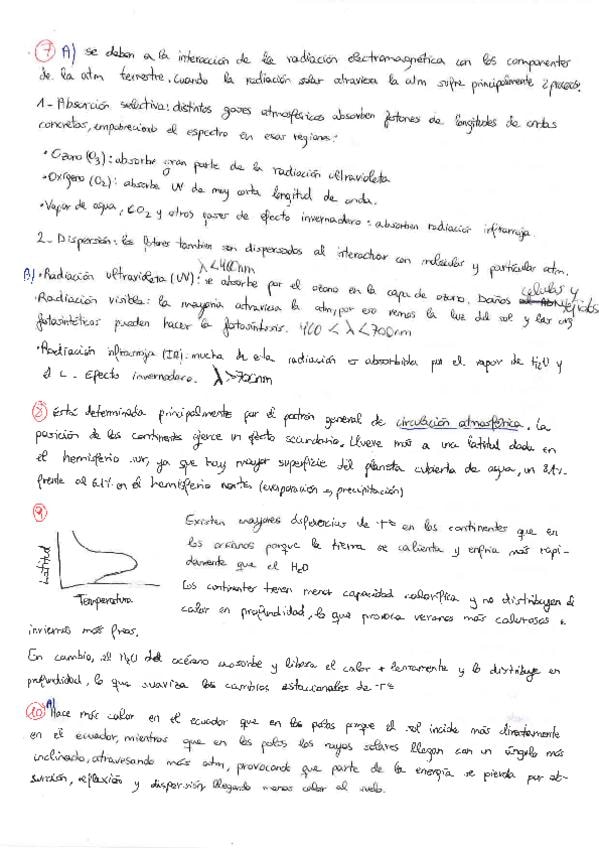 7 A) se deben a la interacción de la radiación electromagnética con los componentes
de la atm terrestre. Cuando la radiación solar atraviesa la atm sufre principalmente 2 procesos:
1- Absorción selectiva: distintos gases atmosféricos absorben fotones de longitudes de ondas
concretas, empobreciendo el espectro en esas regiones:
• Ozono (O3): absorbe gran parte de la radiación ultravioleta
• Oxígeno (O2): absorbe UV de muy corta longitud de onda.
• Vapor de agua, CO2 y otros gases de efecto invernadero: absorben radiación infrarroja.
2- Dispersión: los fotones también son dispersados al interactuar con moléculas y partículas atm.
λ<400nm
B) • Radiación ultravioleta (UV): se absorbe por el ozono en la capa de ozono. Daños células y tejidos
• Radiación visible: la mayoría atraviesa la atm, por eso vemos la luz del sol y las org
fotosintéticos pueden hacer la fotosíntesis. 400 < λ < 700nm
• Radiación infrarroja (IR): mucha de esta radiación es absorbida por el vapor de H2O y
el C - Efecto invernadero. λ>700nm
8 Está determinada principalmente por el patrón general de circulación atmosférica. La
posición de los continentes ejerce un efecto secundario. Llueve más a una latitud dada en
el hemisferio sur, ya que hay mayor superficie del planeta cubierta de agua, un 81%
frente al 61% en el hemisferio norte (evaporación precipitación)
9
Latitud
Temperatura
Existen mayores diferencias de Tª en los continentes que en
los océanos porque la tierra se calienta y enfría más rapi-
damente que el H2O
Los continentes tienen menor capacidad calorífica y no distribuyen el
calor en profundidad, lo que provoca veranos más calurosos e
inviernos más fríos.
En cambio, el H2O del océano absorbe y libera el calor + lentamente y lo distribuye en
profundidad, lo que suaviza los cambios estacionales de Tª
10 A) Hace más calor en el ecuador que en los polos porque el sol incide más directamente
en el ecuador, mientras que en los polos los rayos solares llegan con un ángulo más
inclinado, atravesando más atm, provocando que parte de la energía se pierda por ab-
sorción, reflexión y dispersión llegando menos calor al suelo.